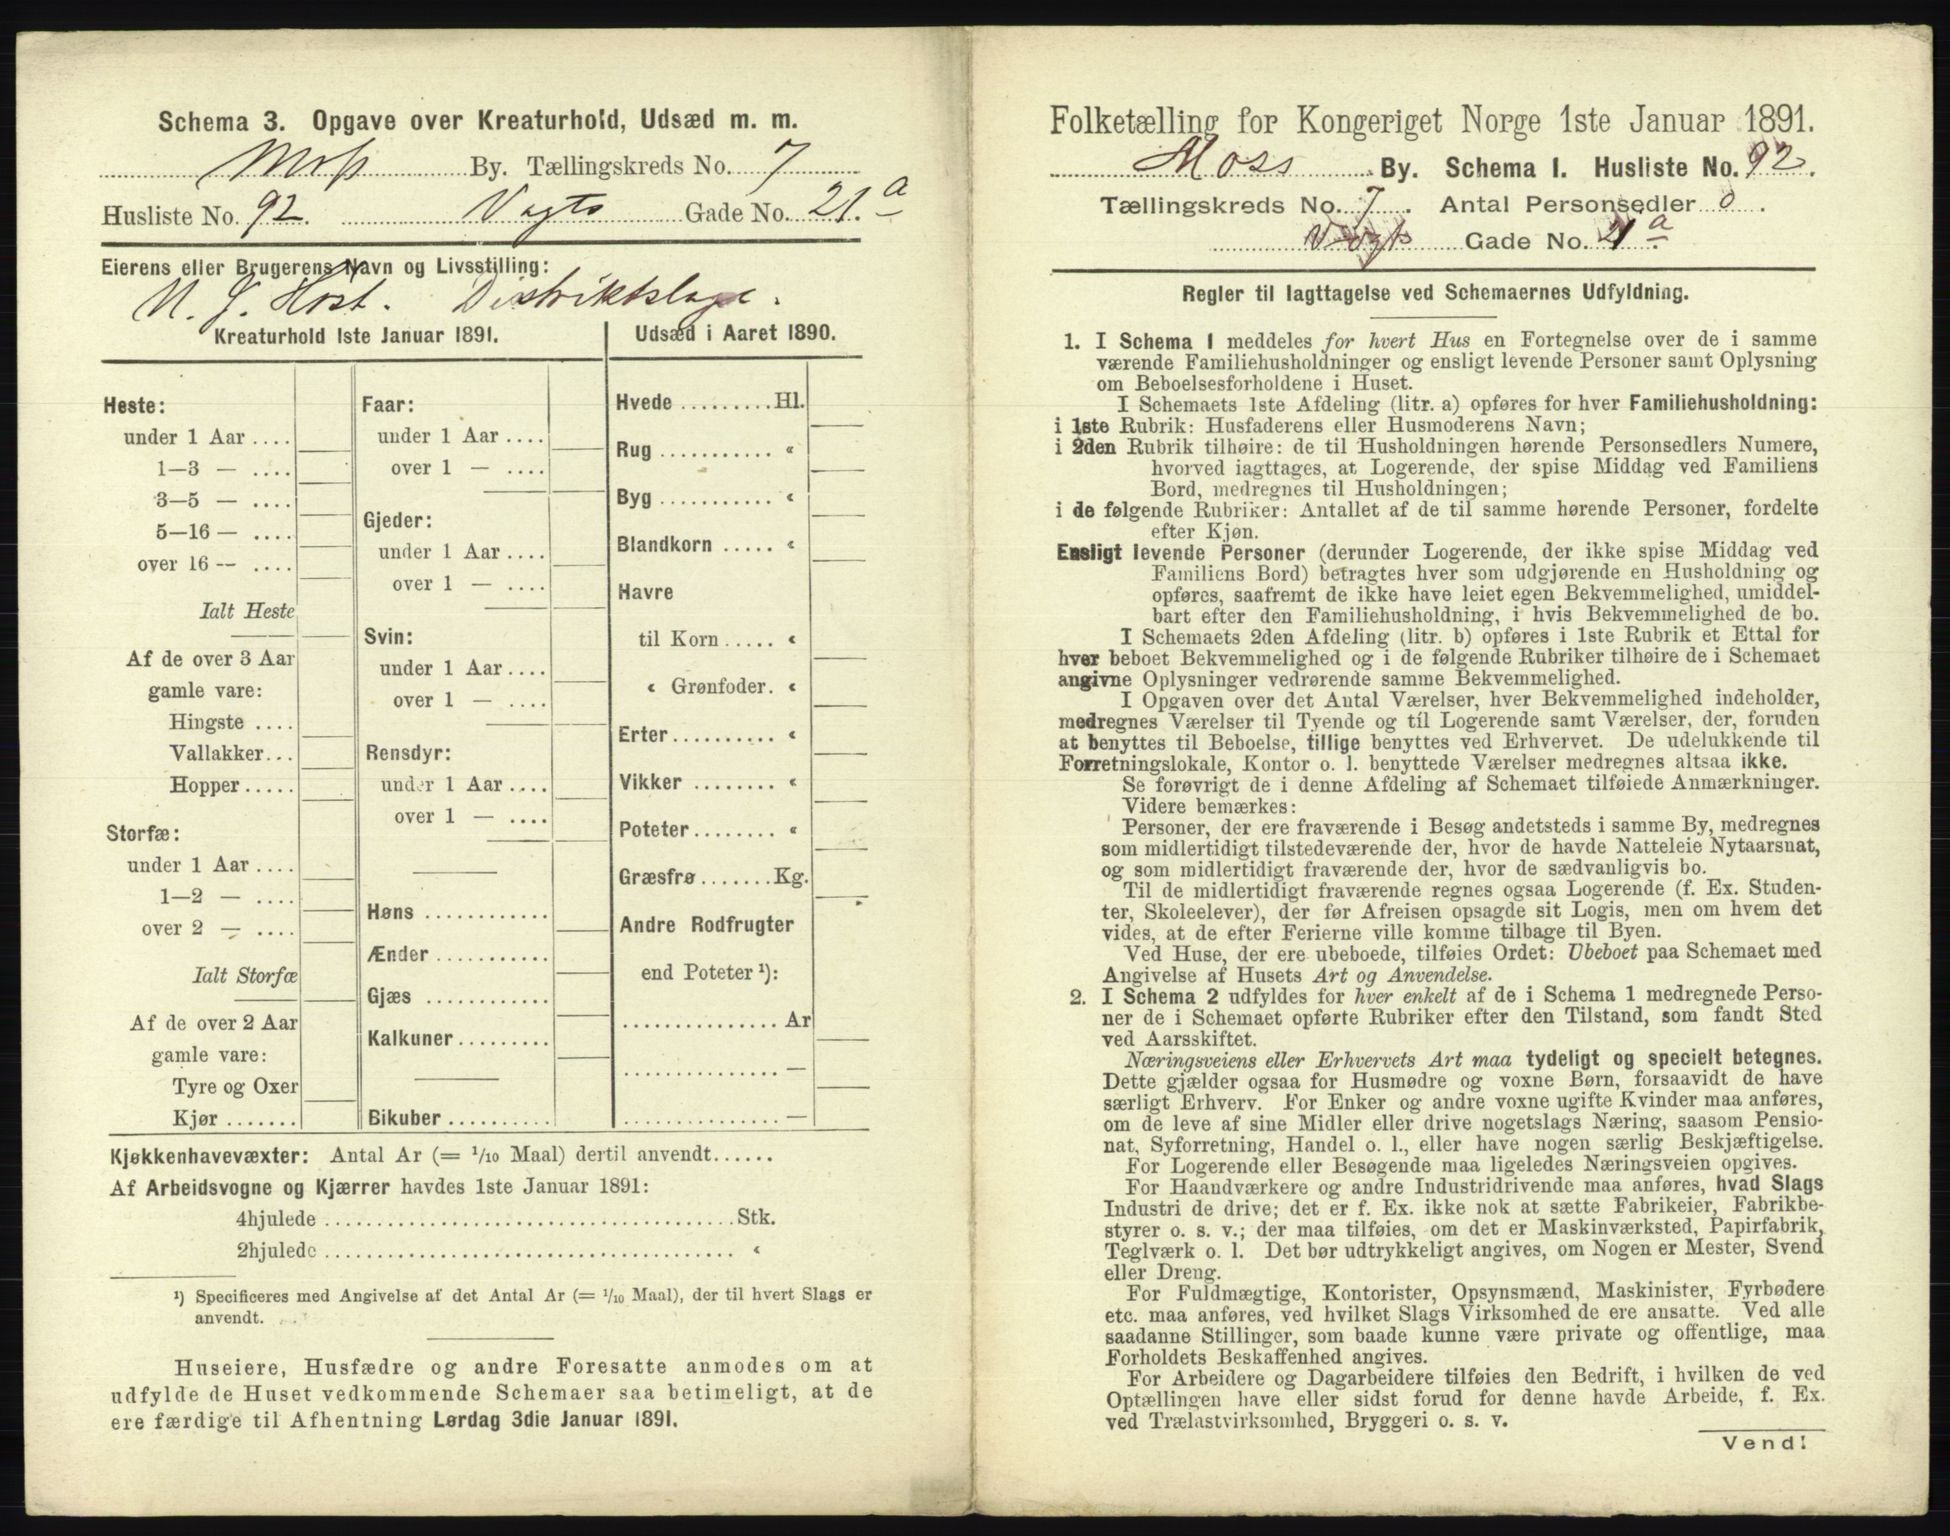 Schema 3. Opgave over Kreaturhold, Udsæd m. m.
Moss By. Tællingskreds No. 7
Husliste No. 92. Vogts Gade No. 21.a
Eierens eller Brugerens Navn og Livsstilling:
N. J. Høst. Distriktslæge.
Kreaturhold 1ste Januar 1891.
Heste:
under 1 Aar ....
1—3 — ....
3—5 — ....
5—16 — ....
over 16 — ....
Ialt Heste
Af de over 3 Aar
gamle vare:
Hingste ....
Vallakker...
Hopper .....
Storfæ:
under 1 Aar ....
1—2 — ....
over 2 — ....
Ialt Storfæ
Af de over 2 Aar
gamle vare:
Tyre og Oxer
Kjør .......
Faar:
under 1 Aar ....
over 1 — ....
Gjeder:
under 1 Aar ....
over 1 — ....
Svin:
under 1 Aar ....
over 1 — ....
Rensdyr:
under 1 Aar ....
over 1 — ....
Høns ............
Ænder ...........
Gjæs ............
Kalkuner.........
Bikuber ..........
Udsæd i Aaret 1890.
Hvede .........Hl.
Rug ........... «
Byg ........... «
Blandkorn ..... «
Havre
til Korn ..... «
« Grønfoder. «
Erter.......... «
Vikker ........ «
Poteter ........ «
Græsfrø.......Kg.
Andre Rodfrugter
end Poteter ¹):
............... Ar
............... —
............... —
Kjøkkenhavevæxter: Antal Ar (= 1/10 Maal) dertil anvendt......
Af Arbeidsvogne og Kjærrer havdes 1ste Januar 1891:
4hjulede ....................................Stk.
2hjulede .................................... «
¹) Specificeres med Angivelse af det Antal Ar (= 1/10 Maal), der til hvert Slags er
anvendt.
Huseiere, Husfædre og andre Foresatte anmodes om at
udfylde de Huset vedkommende Schemaer saa betimeligt, at de
ere færdige til Afhentning Lørdag 3die Januar 1891.
Folketælling for Kongeriget Norge 1ste Januar 1891.
Moss By. Schema I. Husliste No. 92.
Tællingskreds No. 7. Antal Personsedler 0.
Vogts Gade No. 21a
Regler til Iagttagelse ved Schemaernes Udfyldning.
1. I Schema 1 meddeles for hvert Hus en Fortegnelse over de i samme
værende Familiehusholdninger og ensligt levende Personer samt Oplysning
om Beboelsesforholdene i Huset.
I Schemaets 1ste Afdeling (litr. a) opføres for hver Familiehusholdning:
i 1ste Rubrik: Husfaderens eller Husmoderens Navn;
i 2den Rubrik tilhøire: de til Husholdningen hørende Personsedlers Numere,
hvorved iagttages, at Logerende, der spise Middag ved Familiens
Bord, medregnes til Husholdningen;
i de følgende Rubriker: Antallet af de til samme hørende Personer, fordelte
efter Kjøn.
Ensligt levende Personer (derunder Logerende, der ikke spise Middag ved
Familiens Bord) betragtes hver som udgjørende en Husholdning og
opføres, saafremt de ikke have leiet egen Bekvemmelighed, umiddel-
bart efter den Familiehusholdning, i hvis Bekvemmelighed de bo.
I Schemaets 2den Afdeling (litr. b) opføres i 1ste Rubrik et Ettal for
hver beboet Bekvemmelighed og i de følgende Rubriker tilhøire de i Schemaet
angivne Oplysninger vedrørende samme Bekvemmelighed.
I Opgaven over det Antal Værelser, hver Bekvemmelighed indeholder,
medregnes Værelser til Tyende og til Logerende samt Værelser, der, foruden
at benyttes til Beboelse, tillige benyttes ved Erhvervet. De udelukkende til
Forretningslokale, Kontor o. l. benyttede Værelser medregnes altsaa ikke.
Se forøvrigt de i denne Afdeling af Schemaet tilføiede Anmærkninger.
Videre bemærkes:
Personer, der ere fraværende i Besøg andetsteds i samme By, medregnes
som midlertidigt tilstedeværende der, hvor de havde Natteleie Nytaarsnat,
og som midlertidigt fraværende der, hvor de sædvanligvis bo.
Til de midlertidigt fraværende regnes ogsaa Logerende (f. Ex. Studen-
ter, Skoleelever), der før Afreisen opsagde sit Logis, men om hvem det
vides, at de efter Ferierne ville komme tilbage til Byen.
Ved Huse, der ere ubeboede, tilføies Ordet: Ubeboet paa Schemaet med
Angivelse af Husets Art og Anvendelse.
2. I Schema 2 udfyldes for hver enkelt af de i Schema 1 medregnede Perso-
ner de i Schemaet opførte Rubriker efter den Tilstand, som fandt Sted
ved Aarsskiftet.
Næringsveiens eller Erhvervets Art maa tydeligt og specielt betegnes.
Dette gjælder ogsaa for Husmødre og voxne Børn, forsaavidt de have
særligt Erhverv. For Enker og andre voxne ugifte Kvinder maa anføres,
om de leve af sine Midler eller drive nogetslags Næring, saasom Pensio-
nat, Syforretning, Handel o. l., eller have nogen særlig Beskjæftigelse.
For Logerende eller Besøgende maa ligeledes Næringsveien opgives.
For Haandværkere og andre Industridrivende maa anføres, hvad Slags
Industri de drive; det er f. Ex. ikke nok at sætte Fabrikeier, Fabrikbe-
styrer o. s. v.; der maa tilføies, om det er Maskinværksted, Papirfabrik,
Teglværk o. l. Det bør udtrykkeligt angives, om Nogen er Mester, Svend
eller Dreng.
For Fuldmægtige, Kontorister, Opsynsmænd, Maskinister, Fyrbødere
etc. maa anføres, ved hvilket Slags Virksomhed de ere ansatte. Ved alle
saadanne Stillinger, som baade kunne være private og offentlige, maa
Forholdets Beskaffenhed angives.
For Arbeidere og Dagarbeidere tilføies den Bedrift, i hvilken de ved
Optællingen have eller sidst forud for denne havde Arbeide, f. Ex.
ved Trælastvirksomhed, Bryggeri o. s. v.
Vend!